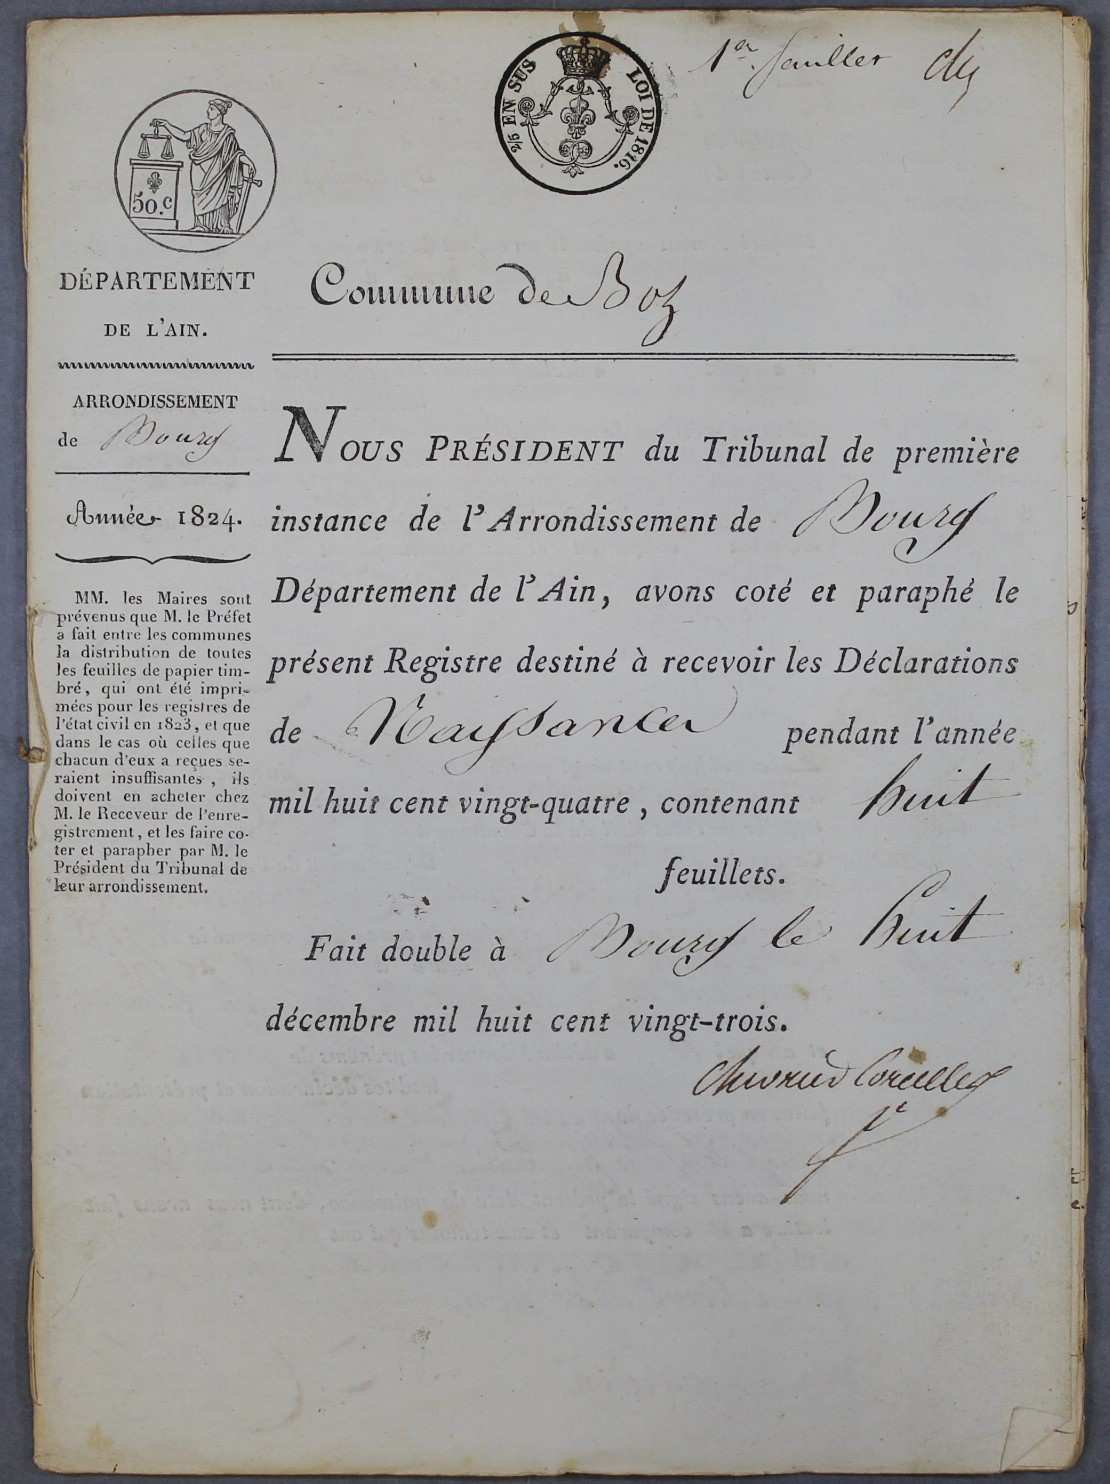 1er feuillet
2/5 EN SUS LOI DE 1816.
50.c
DÉPARTEMENT
DE L'AIN.
Commune de Boz
ARRONDISSEMENT
de Bourg
Année 1824.
MM. les Maires sont
prévenus que M. le Préfet
a fait entre les communes
la distribution de toutes
les feuilles de papier tim-
bré, qui ont été impri-
mées pour les registres de
l'état civil en 1823, et que
dans le cas où celles que
chacun d'eux a reçues se-
raient insuffisantes, ils
doivent en acheter chez
M. le Receveur de l'enre-
gistrement, et les faire co-
ter et parapher par M. le
Président du Tribunal de
leur arrondissement.
NOUS PRÉSIDENT du Tribunal de première
instance de l'Arrondissement de Bourg
Département de l'Ain, avons coté et paraphé le
présent Registre destiné à recevoir les Déclarations
de Naissances pendant l'année
mil huit cent vingt-quatre, contenant huit
feuillets.
Fait double à Bourg le huit
décembre mil huit cent vingt-trois.